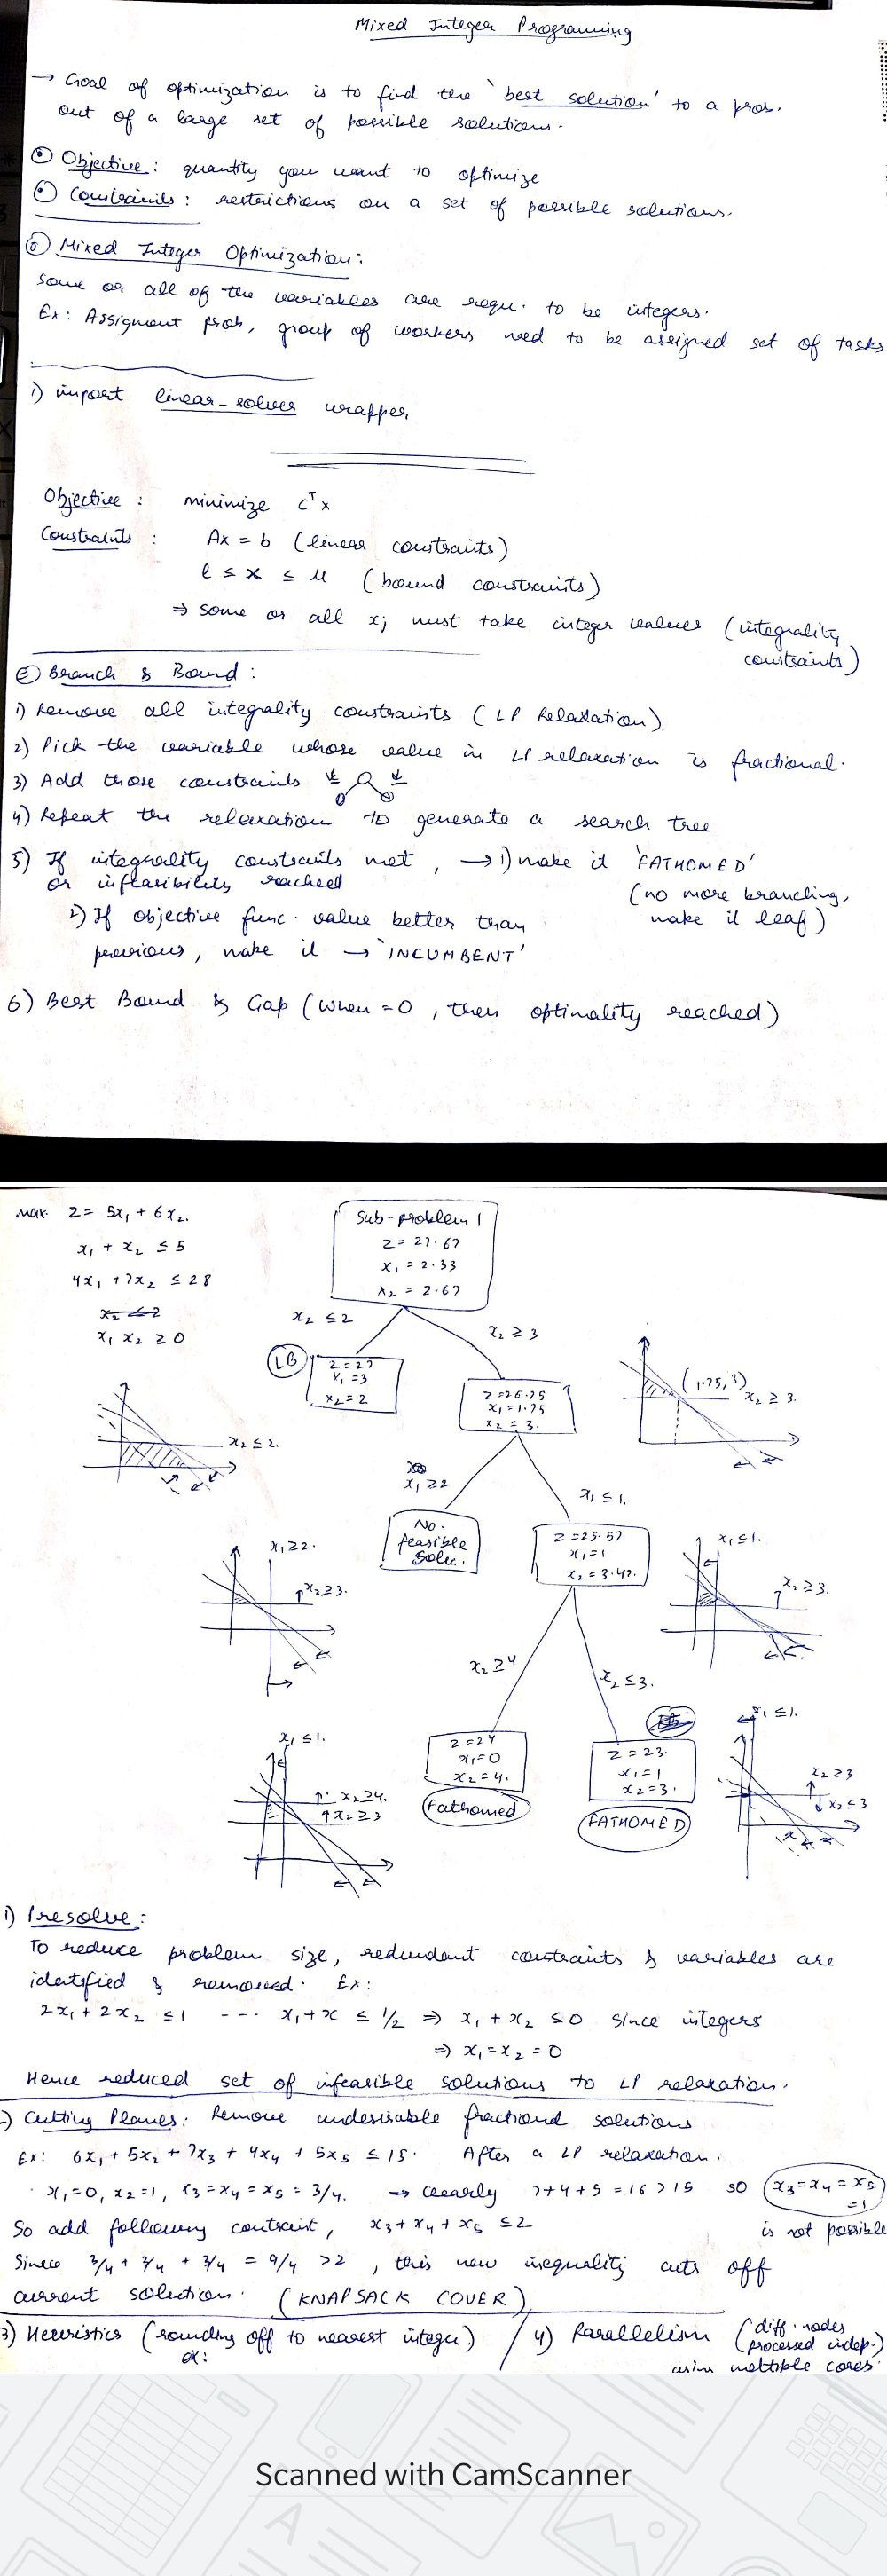 Mixed Integer Programming
→ Goal of optimization is to find the 'best solution' to a prob.
out of a large set of possible solutions.
Objective: quantity you want to optimize
Constraints: restrictions on a set of possible solutions.
Mixed Integer Optimization:
Some or all of the variables are requ. to be integers.
Ex: Assignment prob, group of workers need to be assigned set of tasks
1) import linear-solver wrapper
Objective : minimize cᵀx
Constraints : Ax = b (linear constraints)
l ≤ x ≤ u (bound constraints)
⇒ some or all xj must take integer values (integrality
constraints)
Branch & Bound:
1) Remove all integrality constraints (LP Relaxation).
2) Pick the variable whose value in LP relaxation is fractional.
3) Add those constraints ≤ ≥
4) Repeat the relaxation to generate a search tree
5) If integrality constraints met, → 1) make it 'FATHOMED'
or infeasibility reached
(no more branching,
make it leaf)
2) If objective func. value better than
previous, make it → 'INCUMBENT'
6) Best Bound & Gap (when = 0, then optimality reached)
max. Z = 5x₁ + 6x₂.
x₁ + x₂ ≤ 5
4x₁ + 7x₂ ≤ 28
x₂ ≤ 2
x₁ x₂ ≥ 0
Sub-problem 1
Z = 27.67
x₁ = 2.33
x₂ = 2.67
x₂ ≤ 2
x₂ ≥ 3
LB
Z = 27
x₁ = 3
x₂ = 2
Z = 26.75
x₁ = 1.75
x₂ = 3.
(1.75, 3)
x₂ ≥ 3.
x₂ ≤ 2.
x₁ ≥ 2
x₁ ≤ 1.
No.
feasible
Soln.
Z = 25.57.
x₁ = 1
x₂ = 3.47.
x₁ ≥ 2.
x₂ ≥ 3.
x₁ ≤ 1.
x₂ ≥ 3.
x₂ ≥ 4
x₂ ≤ 3.
Z = 24
x₁ = 0
x₂ = 4.
Fathomed
Z = 23.
x₁ = 1
x₂ = 3.
FATHOMED
x₁ ≤ 1.
x₂ ≥ 4.
x₂ ≥ 3
x₁ ≤ 1.
x₂ ≥ 3
x₂ ≤ 3
1) Presolve:
To reduce problem size, redundant constraints & variables are
identified & removed. Ex:
2x₁ + 2x₂ ≤ 1 --- x₁ + x ≤ 1/2 ⇒ x₁ + x₂ ≤ 0 since integers
⇒ x₁ = x₂ = 0
Hence reduced set of infeasible solutions to LP relaxation.
2) Cutting Planes: Remove undesirable fractional solutions
Ex: 6x₁ + 5x₂ + 7x₃ + 4x₄ + 5x₅ ≤ 15. After a LP relaxation.
x₁ = 0, x₂ = 1, x₃ = x₄ = x₅ = 3/4. → clearly 7+4+5 = 16 > 15 so x₃ = x₄ = x₅
= 1
So add following contraint, x₃ + x₄ + x₅ ≤ 2 is not possible
Since 3/4 + 3/4 + 3/4 = 9/4 > 2, this new inequality cuts off
current solution. (KNAPSACK COVER)
3) Heuristics (rounding off to nearest integer) / 4) Parallelism (diff. nodes
processed indep.)
ex:
using multiple cores.
Scanned with CamScanner